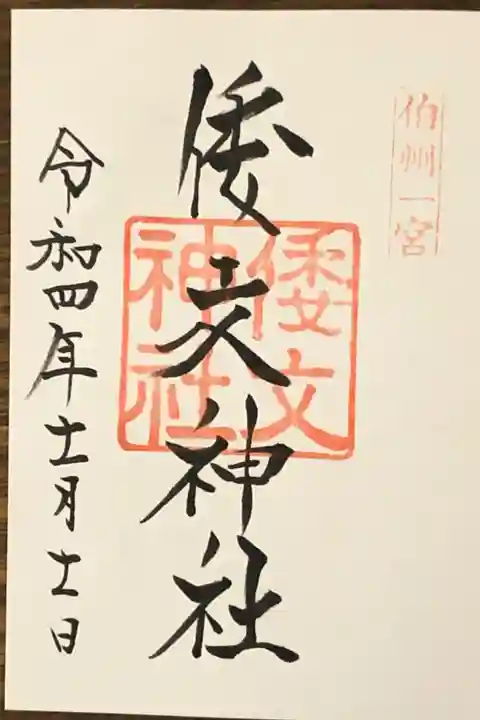 伯州一宮
倭文神社
倭文
神社
令和四年十一月十一日